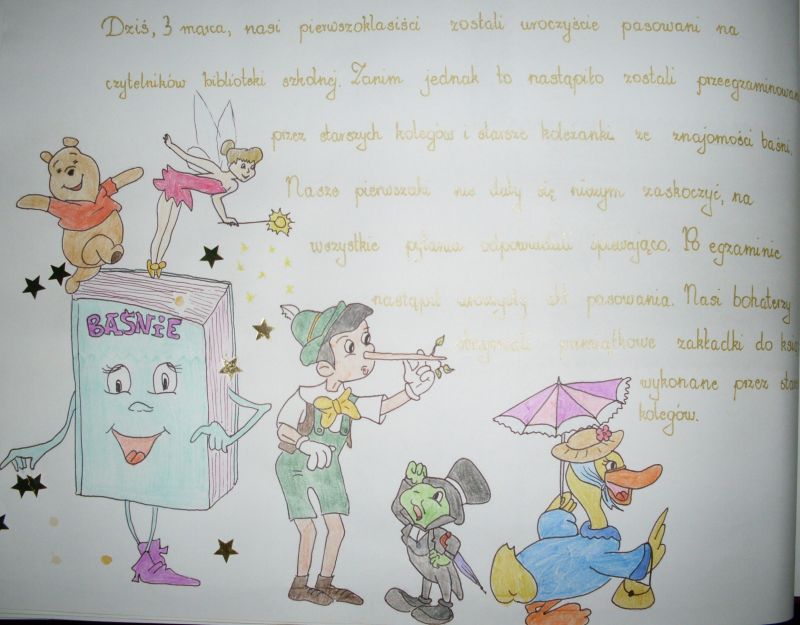 Dziś, 3 marca, nasi pierwszoklasiści zostali uroczyście pasowani na
czytelników biblioteki szkolnej. Zanim jednak to nastąpiło zostali przeegzaminowani
przez starszych kolegów i starsze koleżanki ze znajomości baśni.
Nasze pierwszaki nie dały się niczym zaskoczyć, na
wszystkie pytania odpowiadali śpiewająco. Po egzaminie
nastąpił uroczysty akt pasowania. Nasi bohaterzy
otrzymali pamiątkowe zakładki do
wykonane przez
kolegów.
BAŚNIE